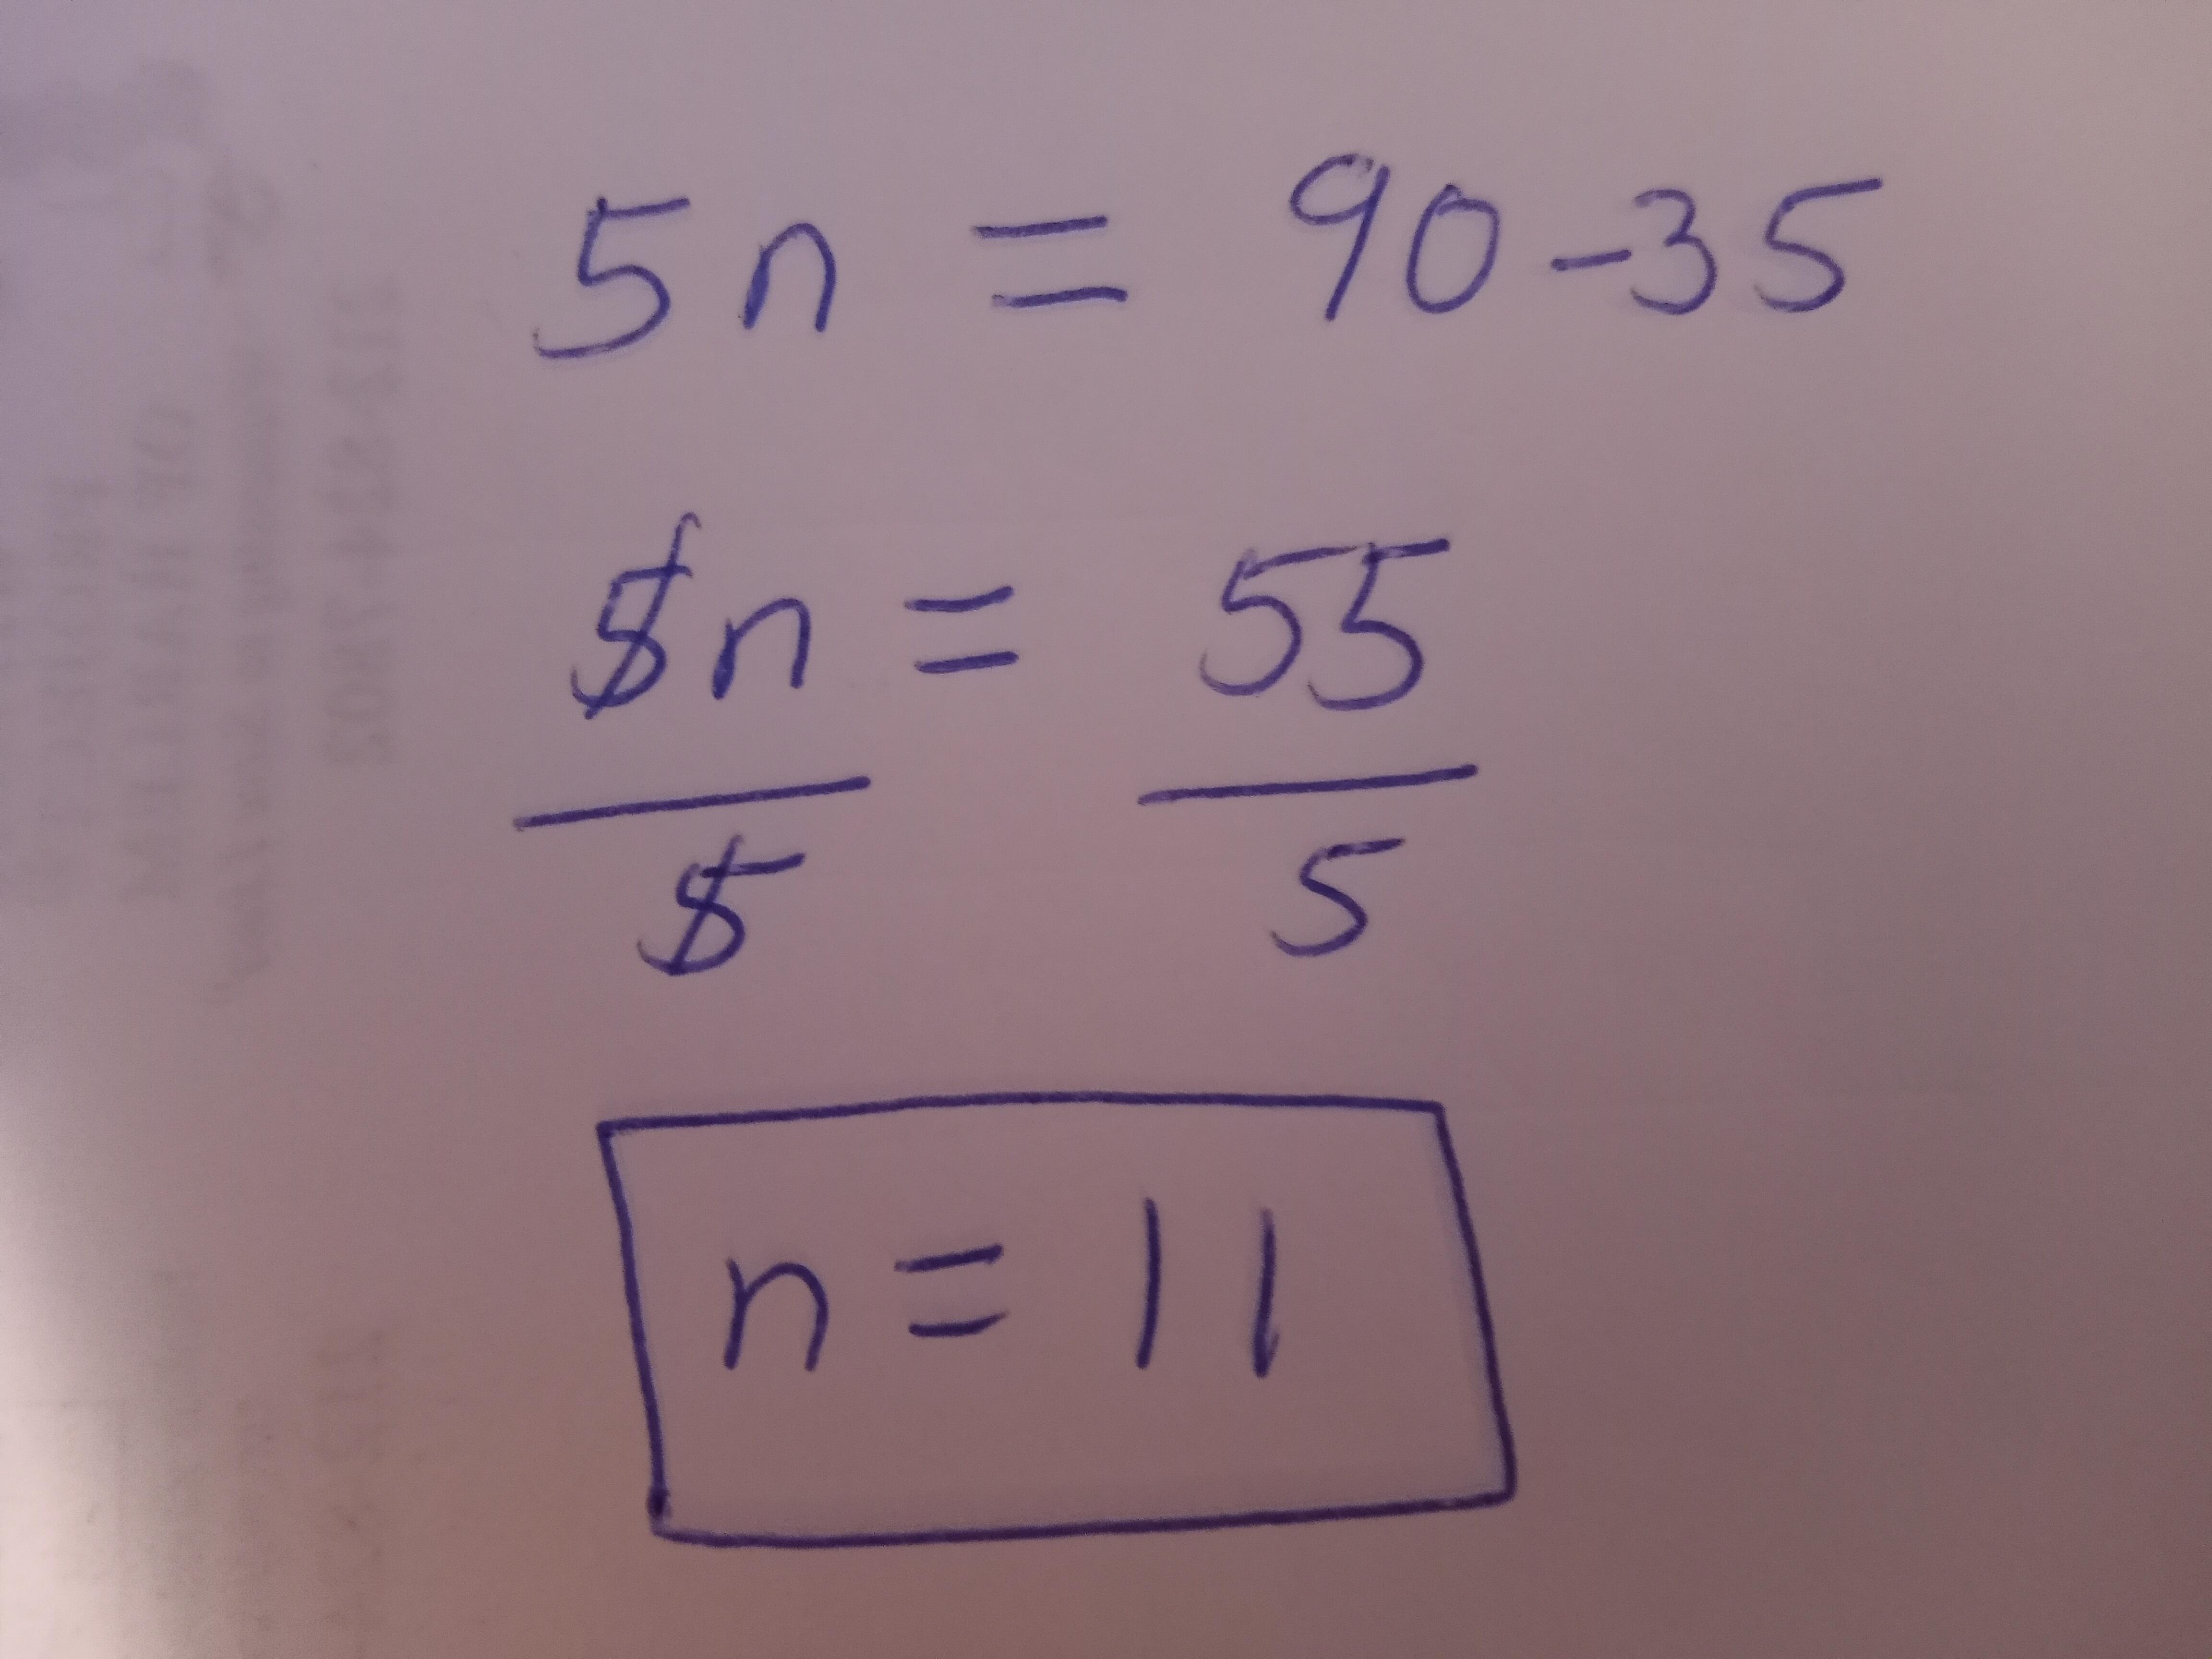 5n = 90-35
5n = 55
5 5
n = 11